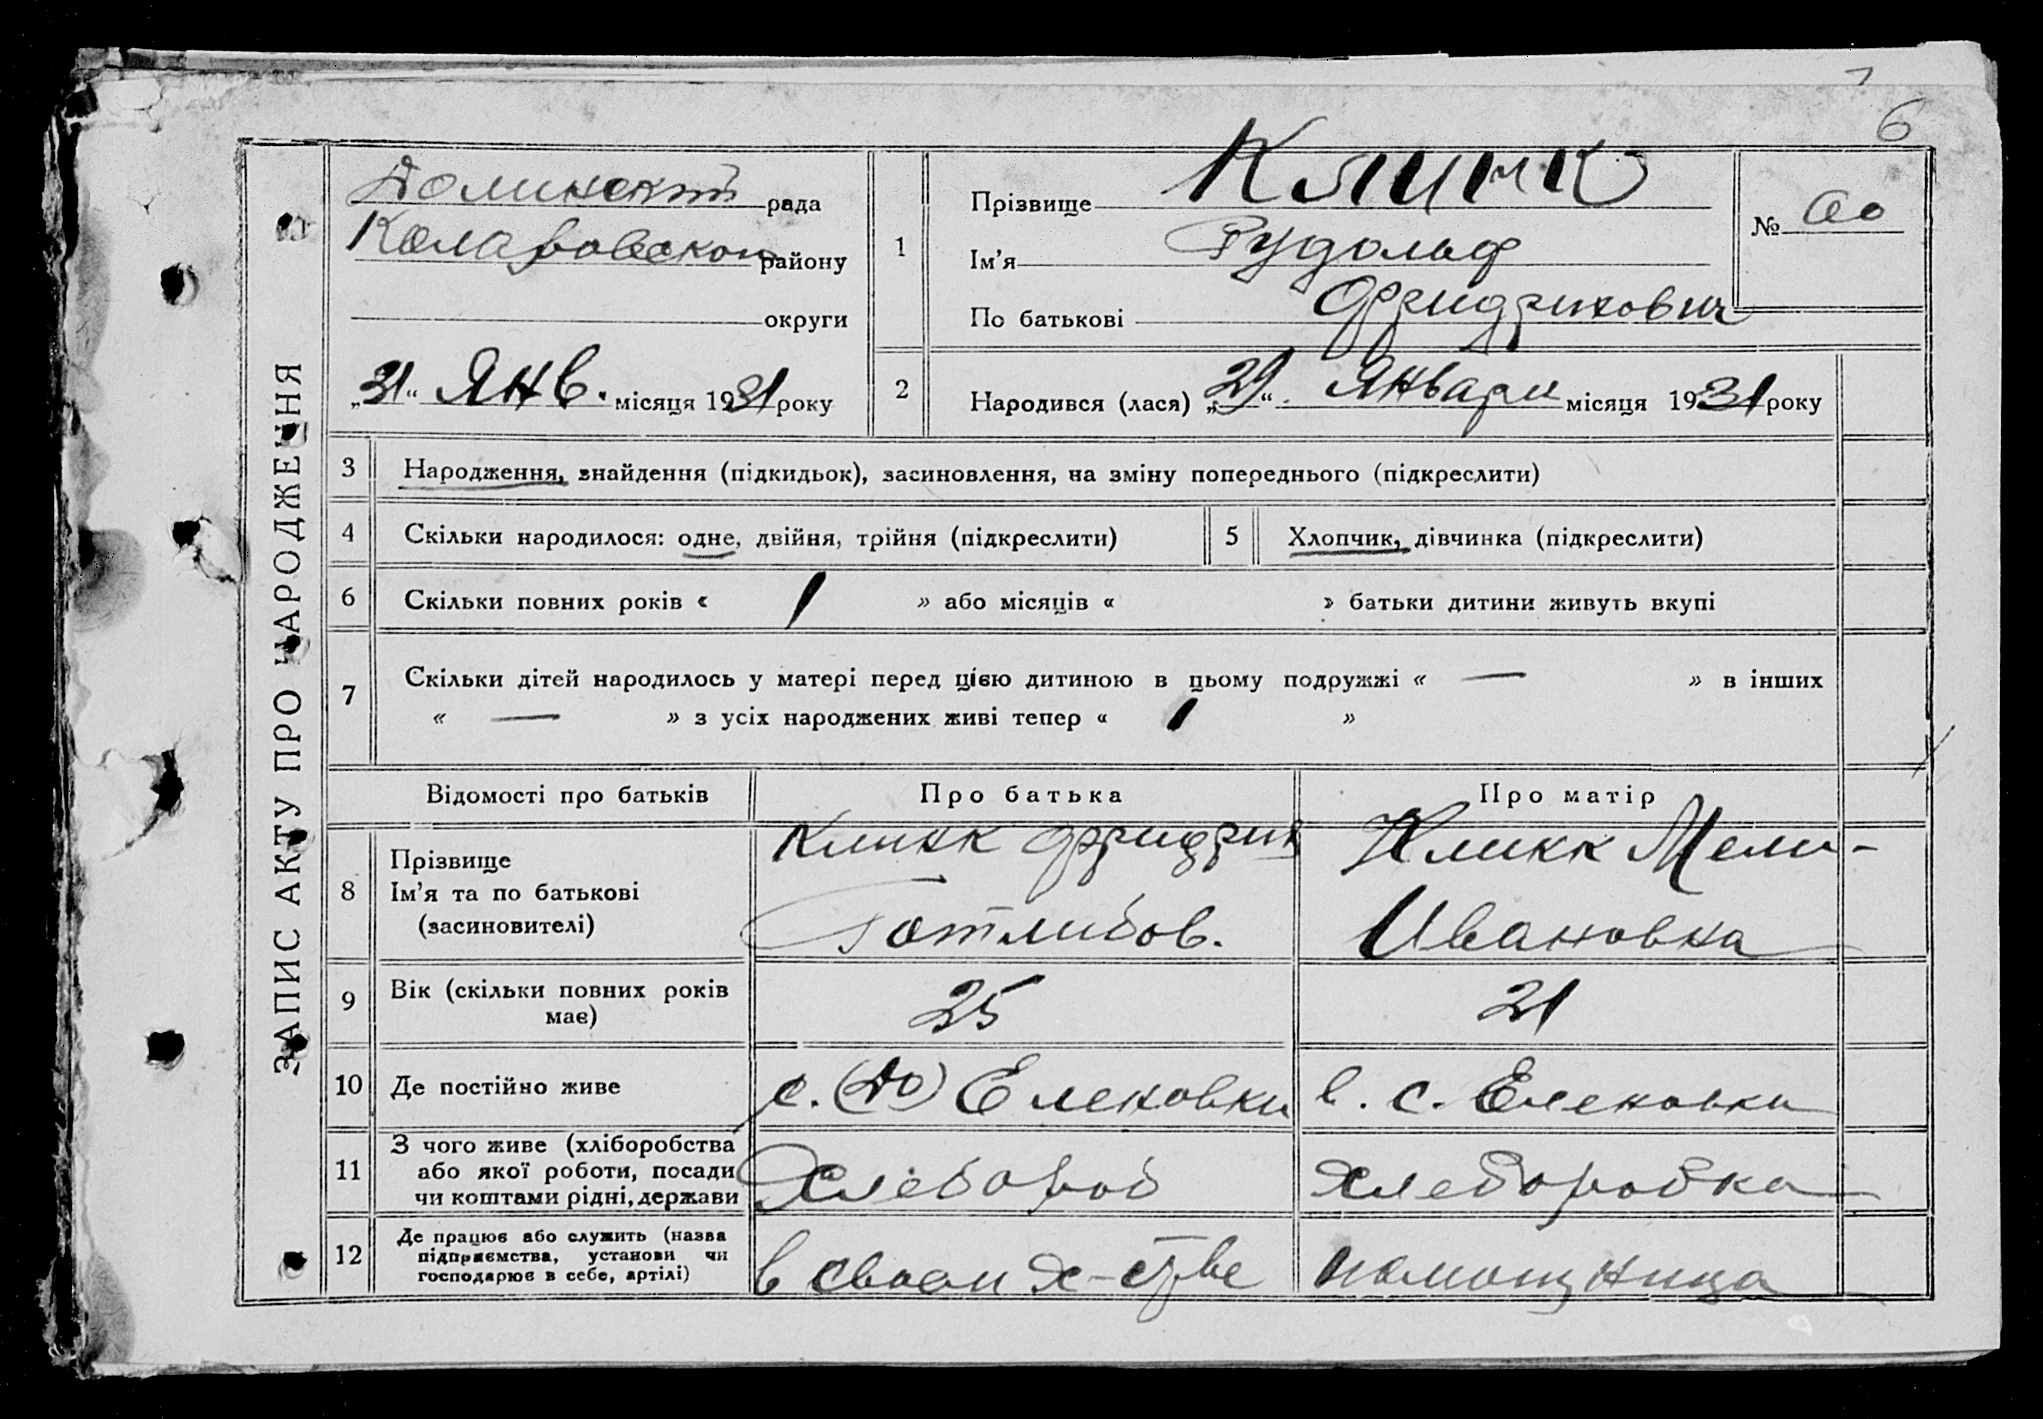 6
ЗАПИС АКТУ ПРО НАРОДЖЕННЯ
рада
району
округи
„31“ Янв. місяця 1931 року
1
Прізвище Клинк
Ім’я Рудольф
По батькові Фридрихович
№
2
Народився (лася) „29“ Января місяця 1931 року
3 Народження, знайдення (підкидьок), засиновлення, на зміну попереднього (підкреслити)
4 Скільки народилося: одне, двійня, трійня (підкреслити)
5 Хлопчик, дівчинка (підкреслити)
6 Скільки повних років « 1 » або місяців « » батьки дитини живуть вкупі
7 Скільки дітей народилось у матері перед цією дитиною в цьому подружжі « — » в інших
« — » з усіх народжених живі тепер « 1 »
Відомості про батьків
Про батька
Про матір
8
Прізвище
Ім’я та по батькові
(засиновителі)
Клинк Фридрих
Готлибов.
Клинк Мели-
Ивановна
9
Вік (скільки повних років
має)
25
21
10 Де постійно живе
с. Еленовки
в. с. Еленовки
11
З чого живе (хліборобства
або якої роботи, посади
чи коштами рідні, держави
Хлебороб
Хлеборобка
12
Де працює або служить (назва
підприємства, установи чи
господарює в себе, артілі)
в своем х-стве
помощница